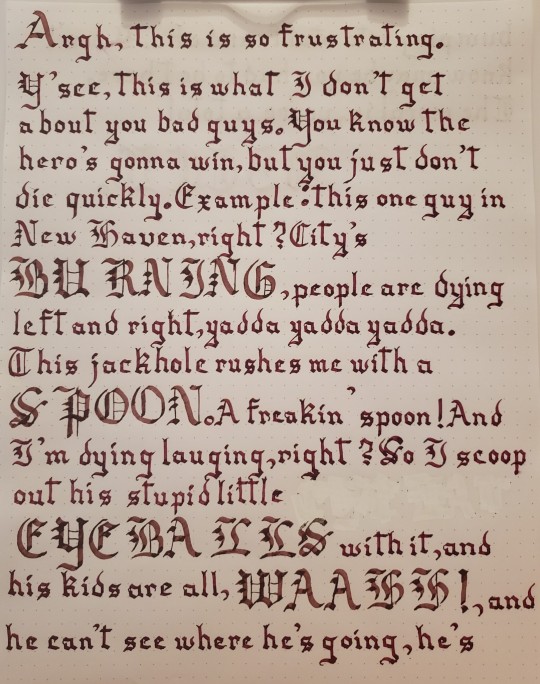 Argh, this is so frustrating.
Y'see, this is what I don't get
about you bad guys. You know the
hero's gonna win, but you just don't
die quickly. Example: this one guy in
New Haven, right? City's
BURNING, people are dying
left and right, yadda yadda yadda.
This jackhole rushes me with a
SPOON. A freakin' spoon! And
I'm dying lauging, right? So I scoop
out his stupid little
EYEBALLS with it, and
his kids are all, WAAHH!, and
he can't see where he's going, he's